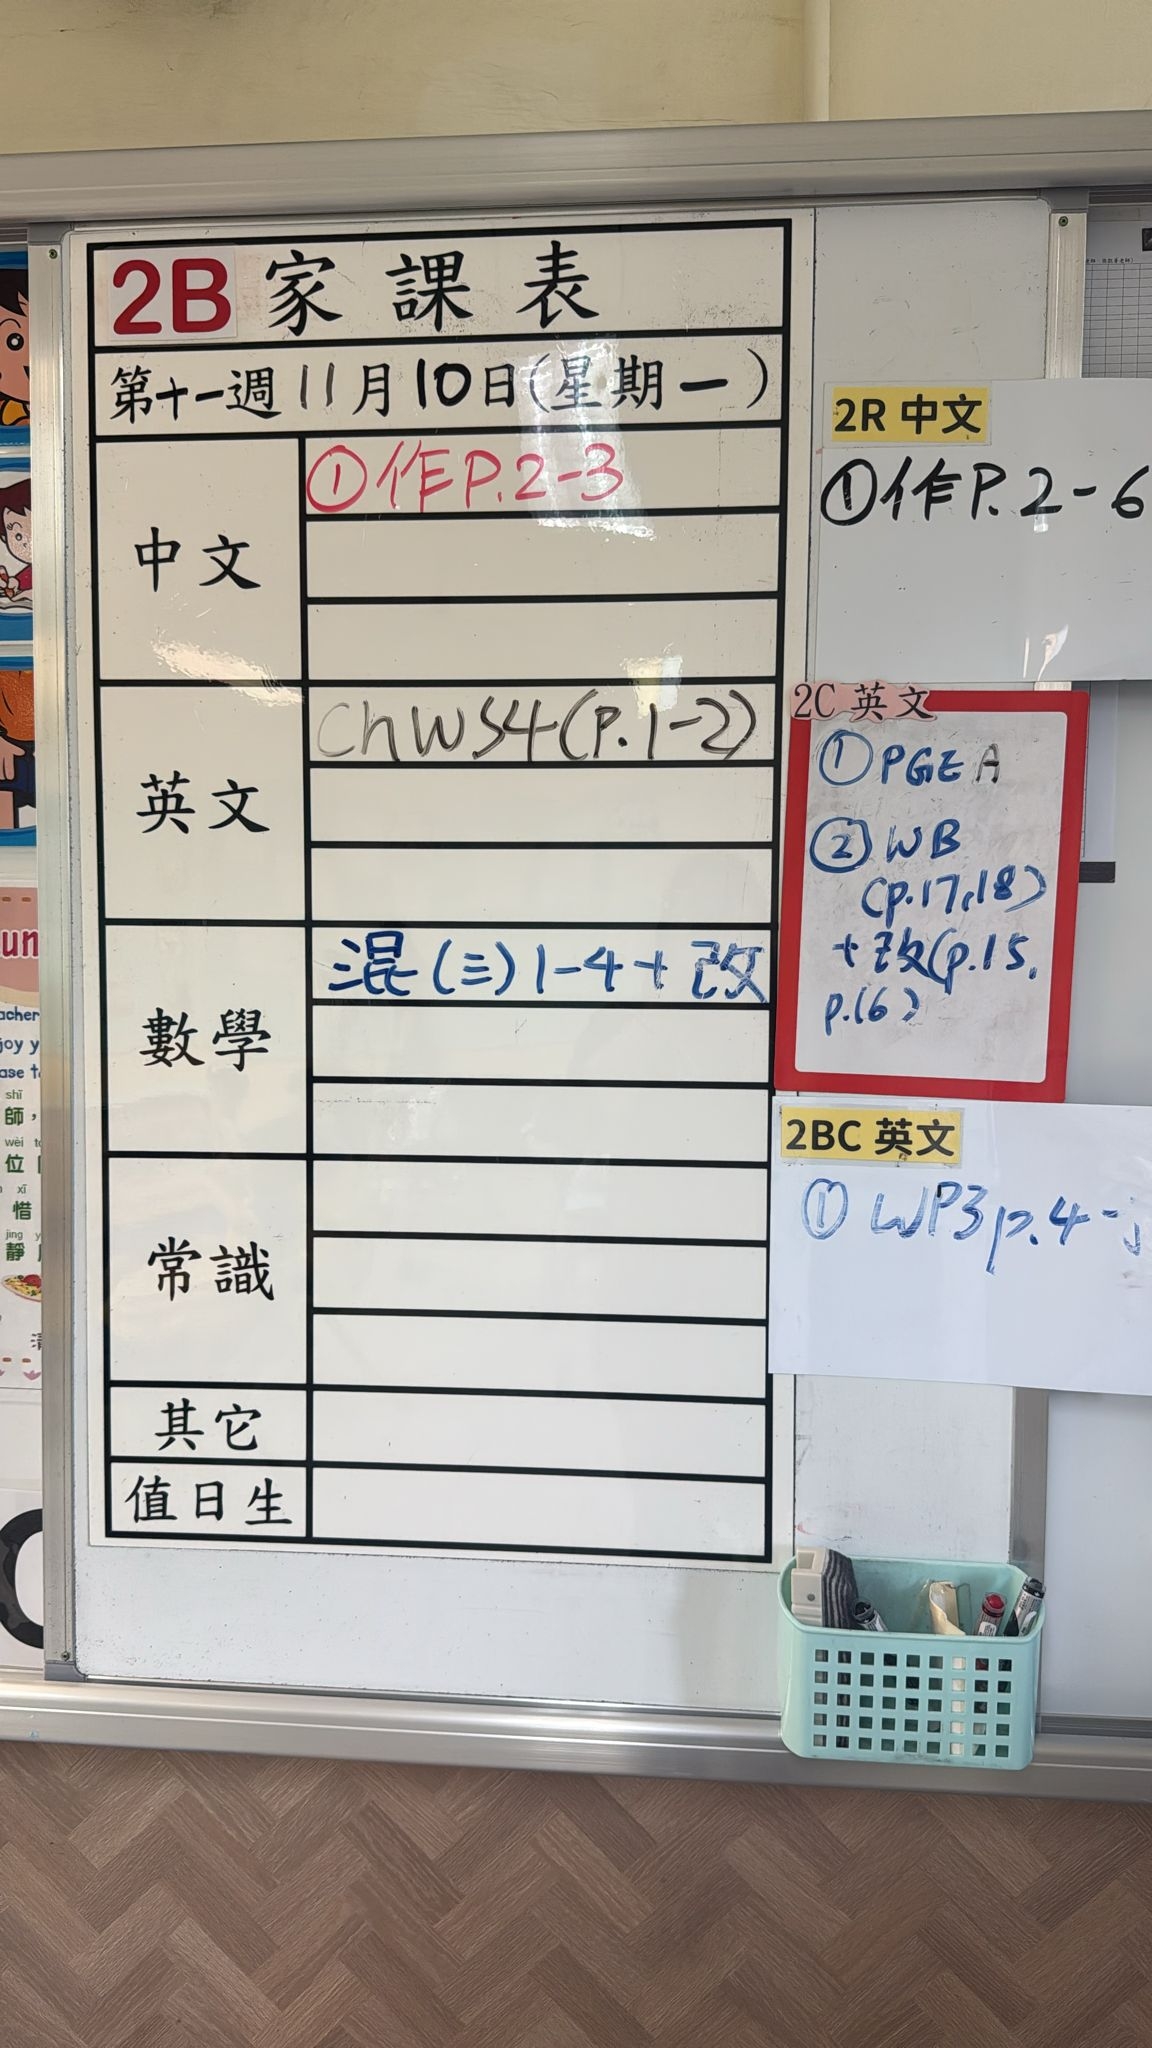 2B 家課表
第十一週 11月10日(星期一)
中文
①作P.2-3
英文
Ch WS4(P.1-2)
數學
混(三)1-4+改
常識
其它
值日生
2R 中文
①作P.2-6
2C 英文
①PGE A
②WB
(p.17,18)
+改(p.15,
p.16)
2BC 英文
① WP3 p.4-
un
acher
joy y
ase t
shī
師，
wèi
位
xī
惜
jìng
靜